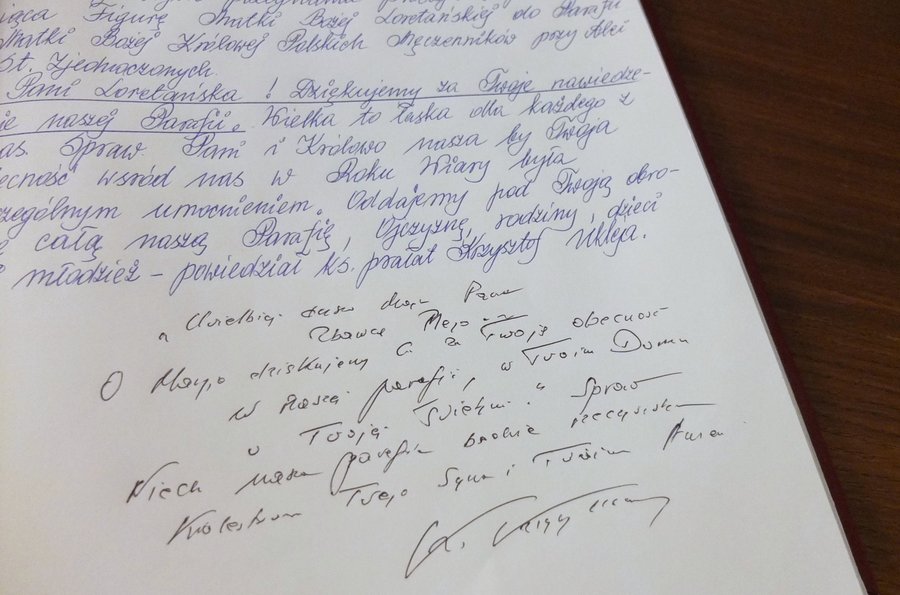 Figurę Matki Bożej Loretańskiej do Parafii
Matki Bożej Królowej Polskich Męczenników przy Alei
St. Zjednoczonych.
Pani Loretańska! Dziękujemy za Twoje nawiedze-
nie naszej Parafii. Wielka to łaska dla każdego z
nas. Spraw Pani i Królowo nasza by Twoja
ecność wśród nas w Roku Wiary była
czególnym umocnieniem. Oddajemy pod Twoją obro-
całą naszą Parafię, Ojczyznę, rodziny, dzieci
i młodzież – powiedział ks. prałat Krzysztof Ukleja.
„Uwielbiaj duszo moja Pana
Zbawcę Mego"
O Maryjo dziękujemy Ci za Twoją obecność
w naszej parafii, w Twoim Domu
w Twojej Świątyni. Spraw
Niech nasza parafia będzie
Królestwem Twego Syna i Twoim
Ks. Krzysztof